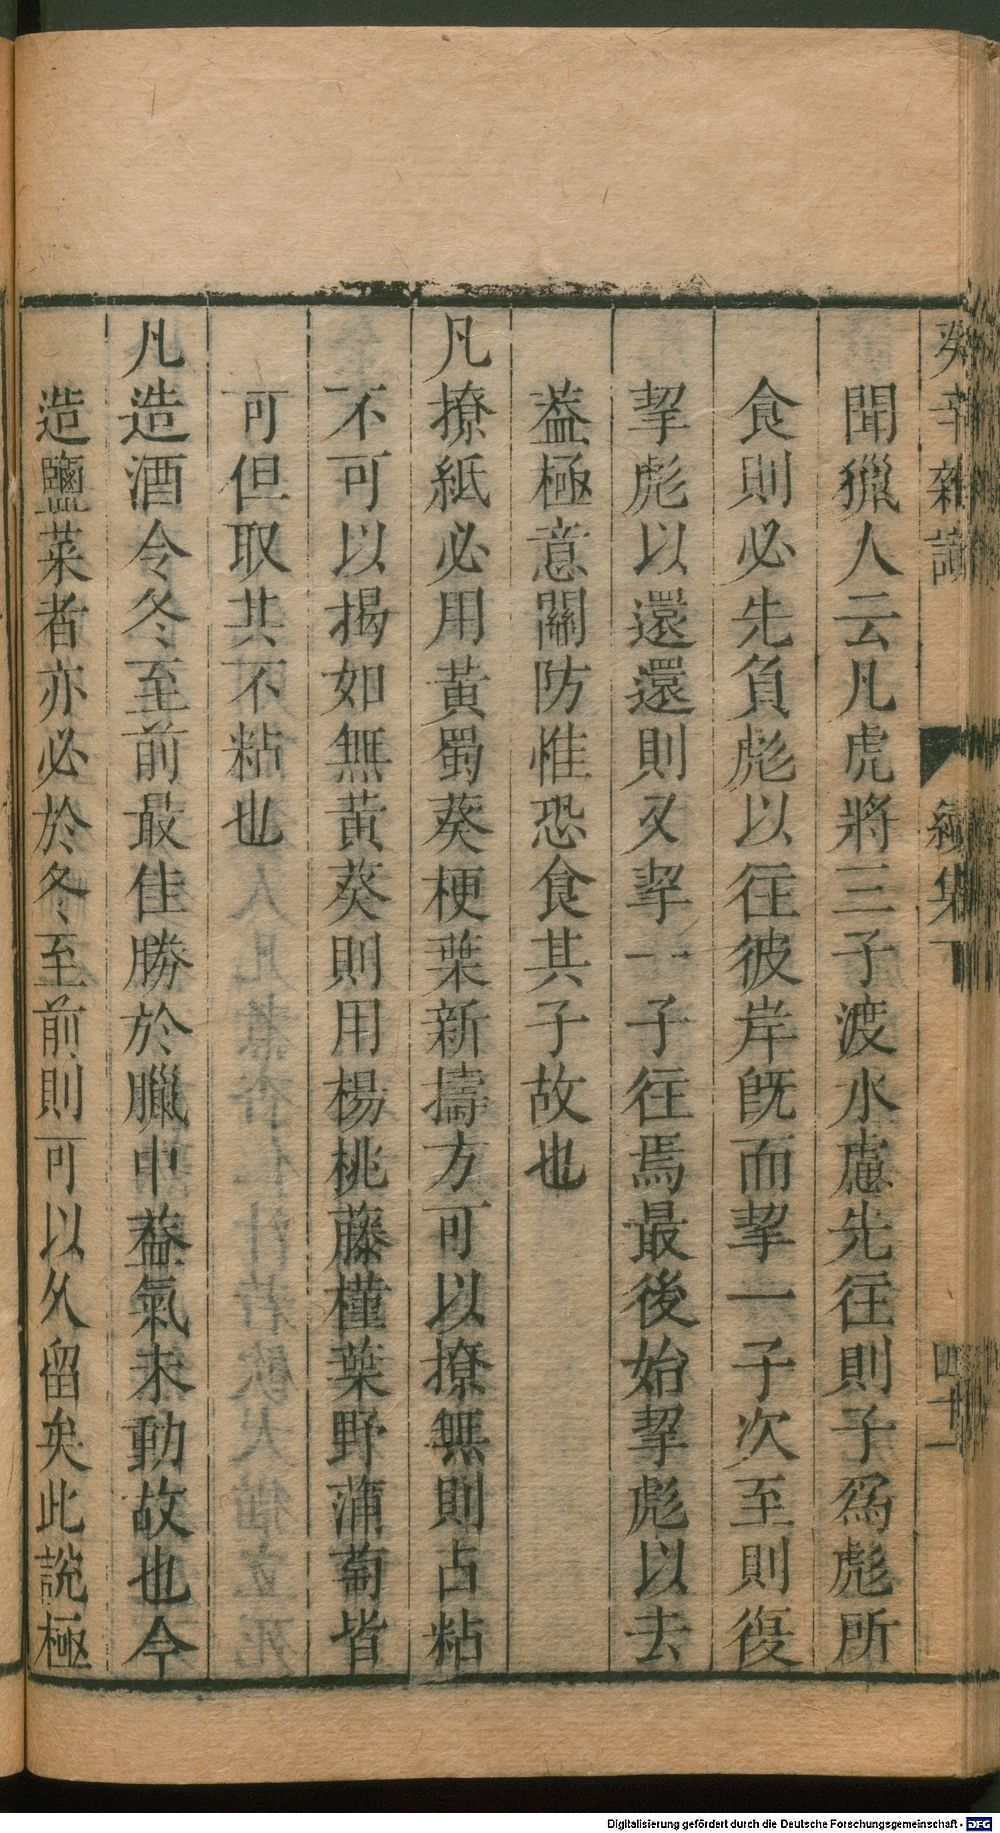 癸辛雜識 續集下 四十一
聞獵人云凡虎將三子渡水慮先往則子爲彪所
食則必先負彪以往彼岸旣而挈一子次至則復
挈彪以還還則又挈一子往焉最後始挈彪以去
葢極意關防惟恐食其子故也
凡撩紙必用黃蜀葵梗葉新擣方可以撩無則占粘
不可以揭如無黃葵則用楊桃藤槿葉野蒲萄皆
可但取其不粘也
凡造酒令冬至前最佳勝於臘中葢氣未動故也今
造鹽菜者亦必於冬至前則可以久留矣此說極
Digitalisierung gefördert durch die Deutsche Forschungsgemeinschaft - DFG